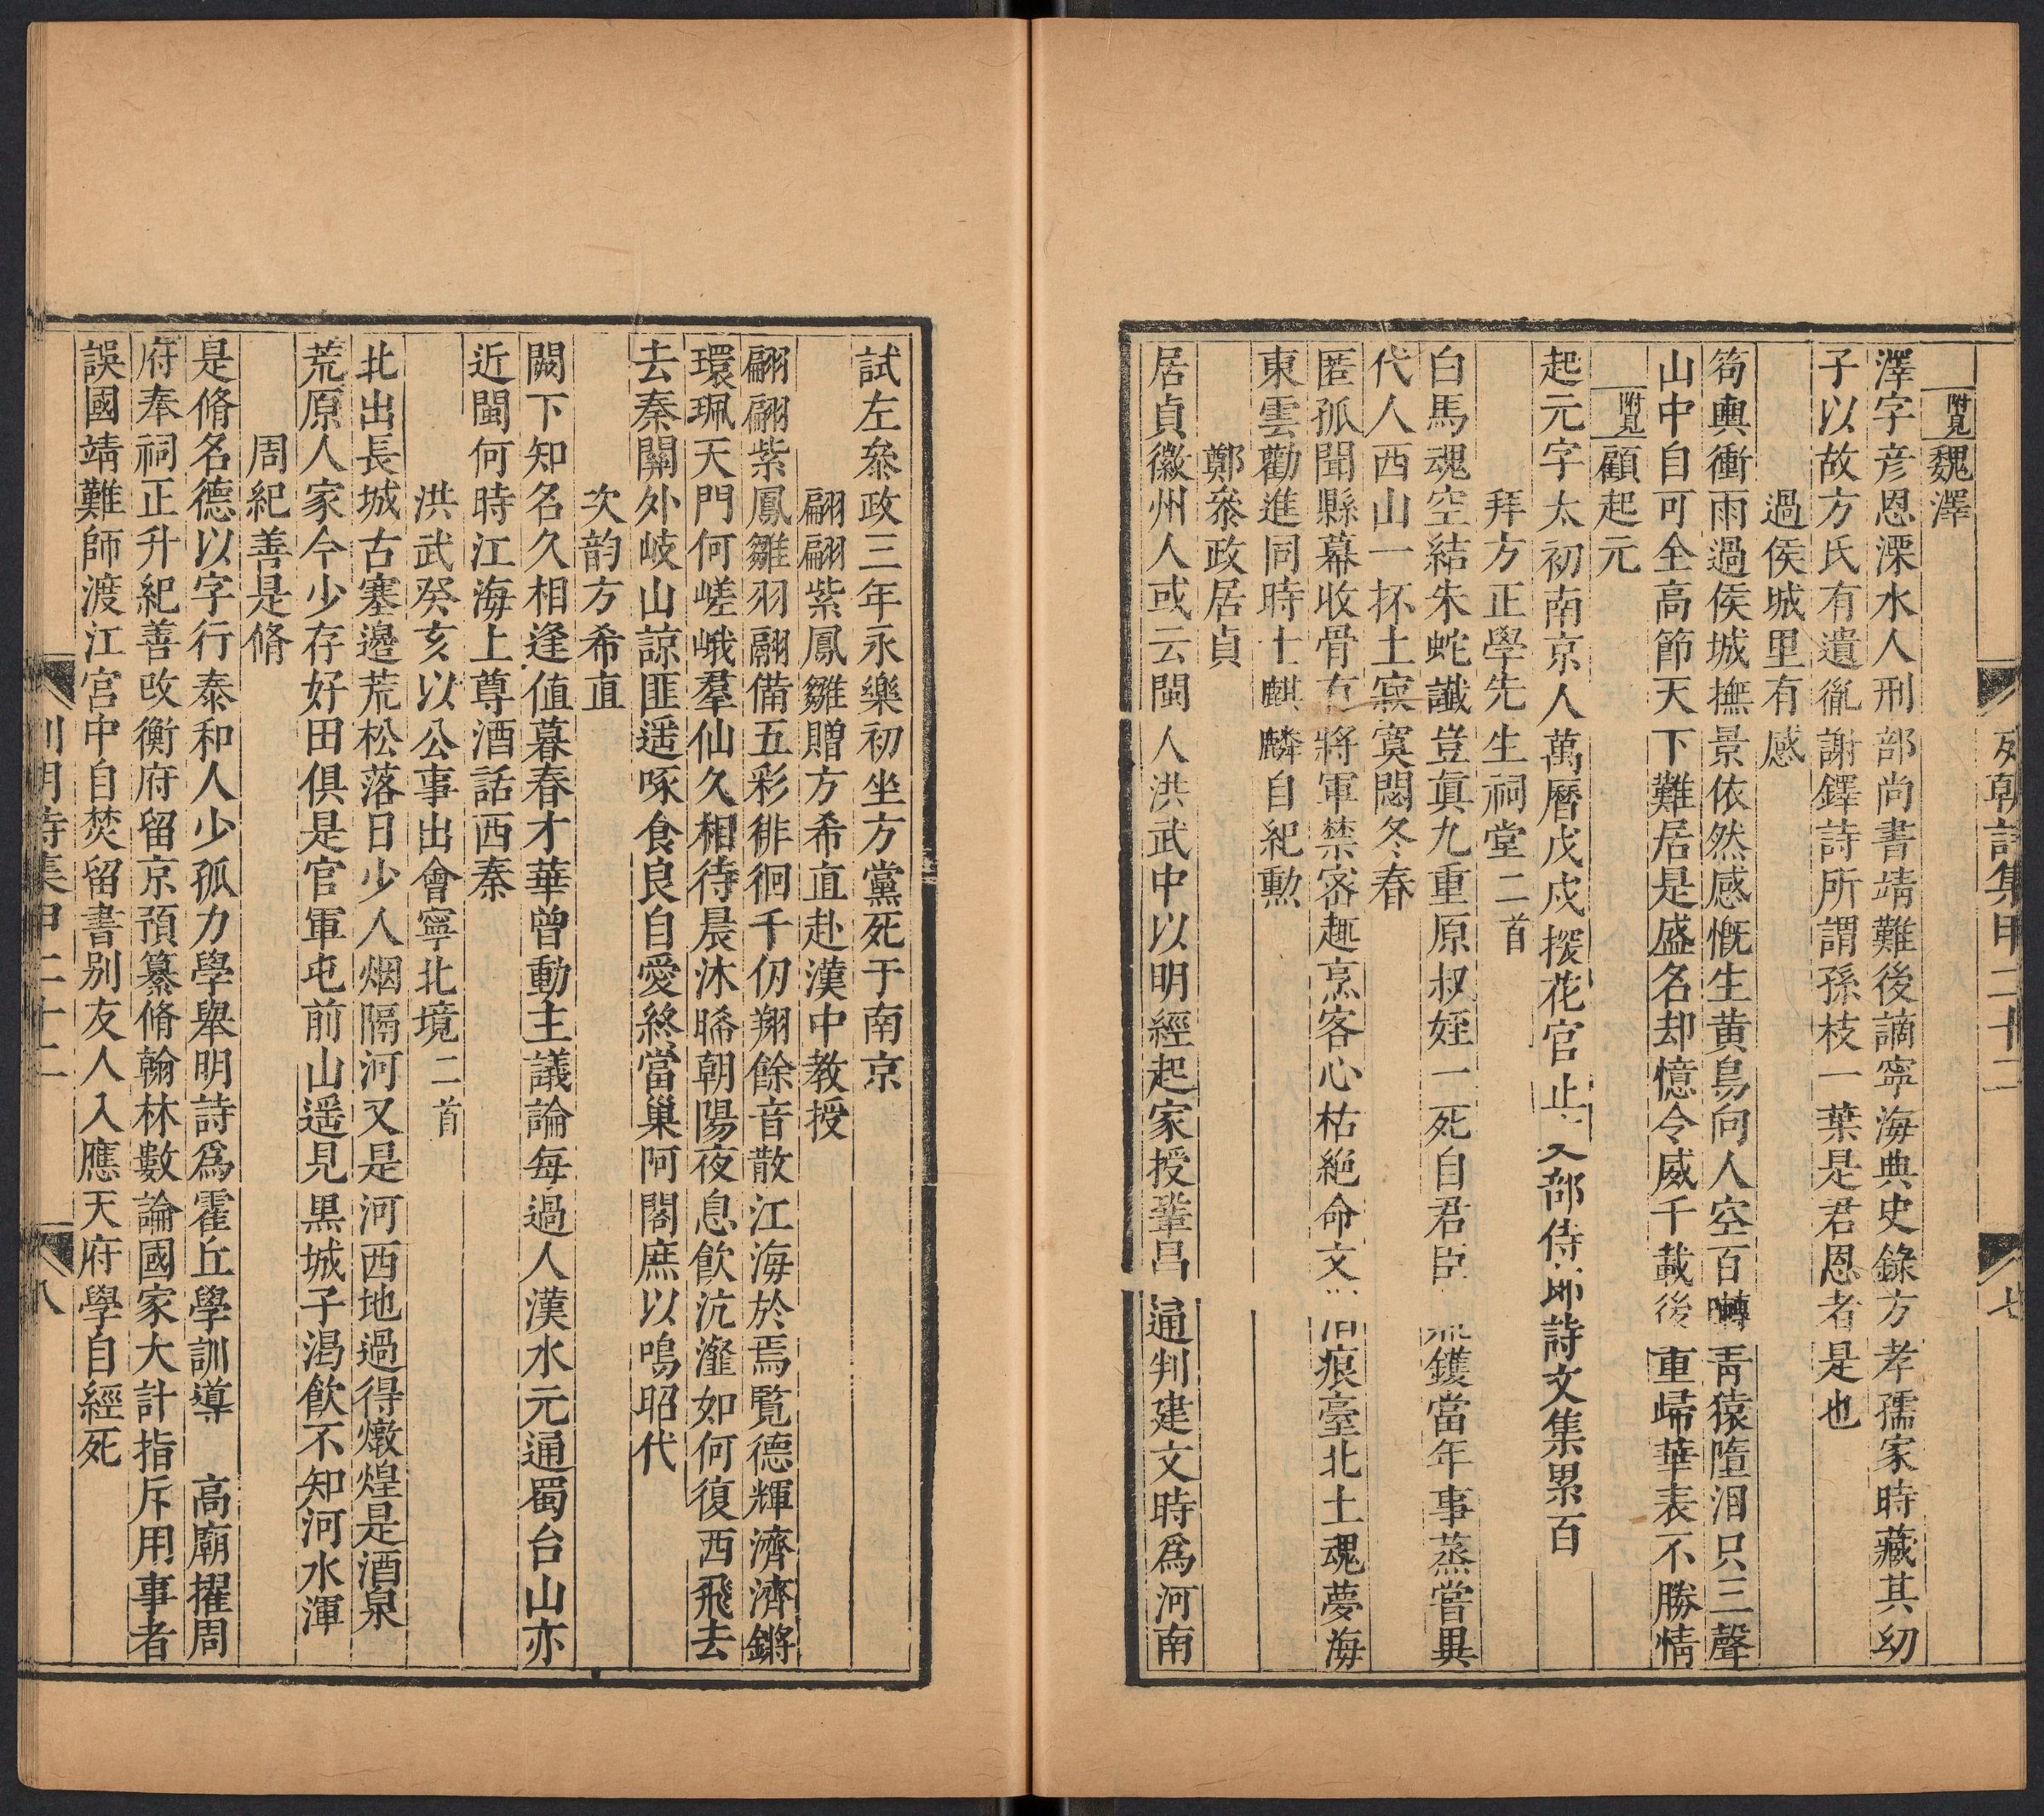 列朝詩集甲二十二
七
附見魏澤
澤字彦恩溧水人刑部尚書靖難後謫寧海典史錄方孝孺家時藏其幼
子以故方氏有遺胤謝鐸詩所謂孫枝一葉是君恩者是也
過侯城里有感
筍輿衝雨過侯城撫景依然感慨生黃鳥向人空百囀青猿墮淚只三聲
山中自可全高節天下難居是盛名却憶令威千載後重歸華表不勝情
附見顧起元
起元字太初南京人萬曆戊戌探花官止 部侍郎詩文集累百
拜方正學先生祠堂二首
白馬魂空結朱蛇讖豈眞九重原叔姪一死自君臣 鑊當年事蒸嘗異
代人西山一抔土寂寞悶冬春
匿孤聞縣幕收骨有將軍禁密趣烹客心枯絶命文 痕臺北土魂夢海
東雲勸進同時士麒麟自紀勲
鄭叅政居貞
居貞徽州人或云閩人洪武中以明經起家授鞏昌通判建文時爲河南
試左叅政三年永樂初坐方黨死于南京
翩翩紫鳳雛贈方希直赴漢中教授
翩翩紫鳳雛羽翮備五彩徘徊千仞翔餘音散江海於焉覽德輝濟濟鏘
環珮天門何嵯峨羣仙久相待晨沐晞朝陽夜息飲沆瀣如何復西飛去
去秦關外岐山諒匪遥啄食良自愛終當巢阿閣庶以鳴昭代
次韵方希直
闕下知名久相逢值暮春才華曾動主議論每過人漢水元通蜀台山亦
近閩何時江海上尊酒話西秦
洪武癸亥以公事出會寧北境二首
北出長城古塞邊荒松落日少人烟隔河又是河西地過得燉煌是酒泉
荒原人家今少存好田俱是官軍屯前山遥見黑城子渴飲不知河水渾
周紀善是脩
是脩名德以字行泰和人少孤力學舉明詩爲霍丘學訓導 高廟擢周
府奉祠正升紀善攺衡府留京預纂脩翰林數論國家大計指斥用事者
誤國靖難師渡江宮中自焚留書别友人入應天府學自經死
列朝詩集甲二十二
八